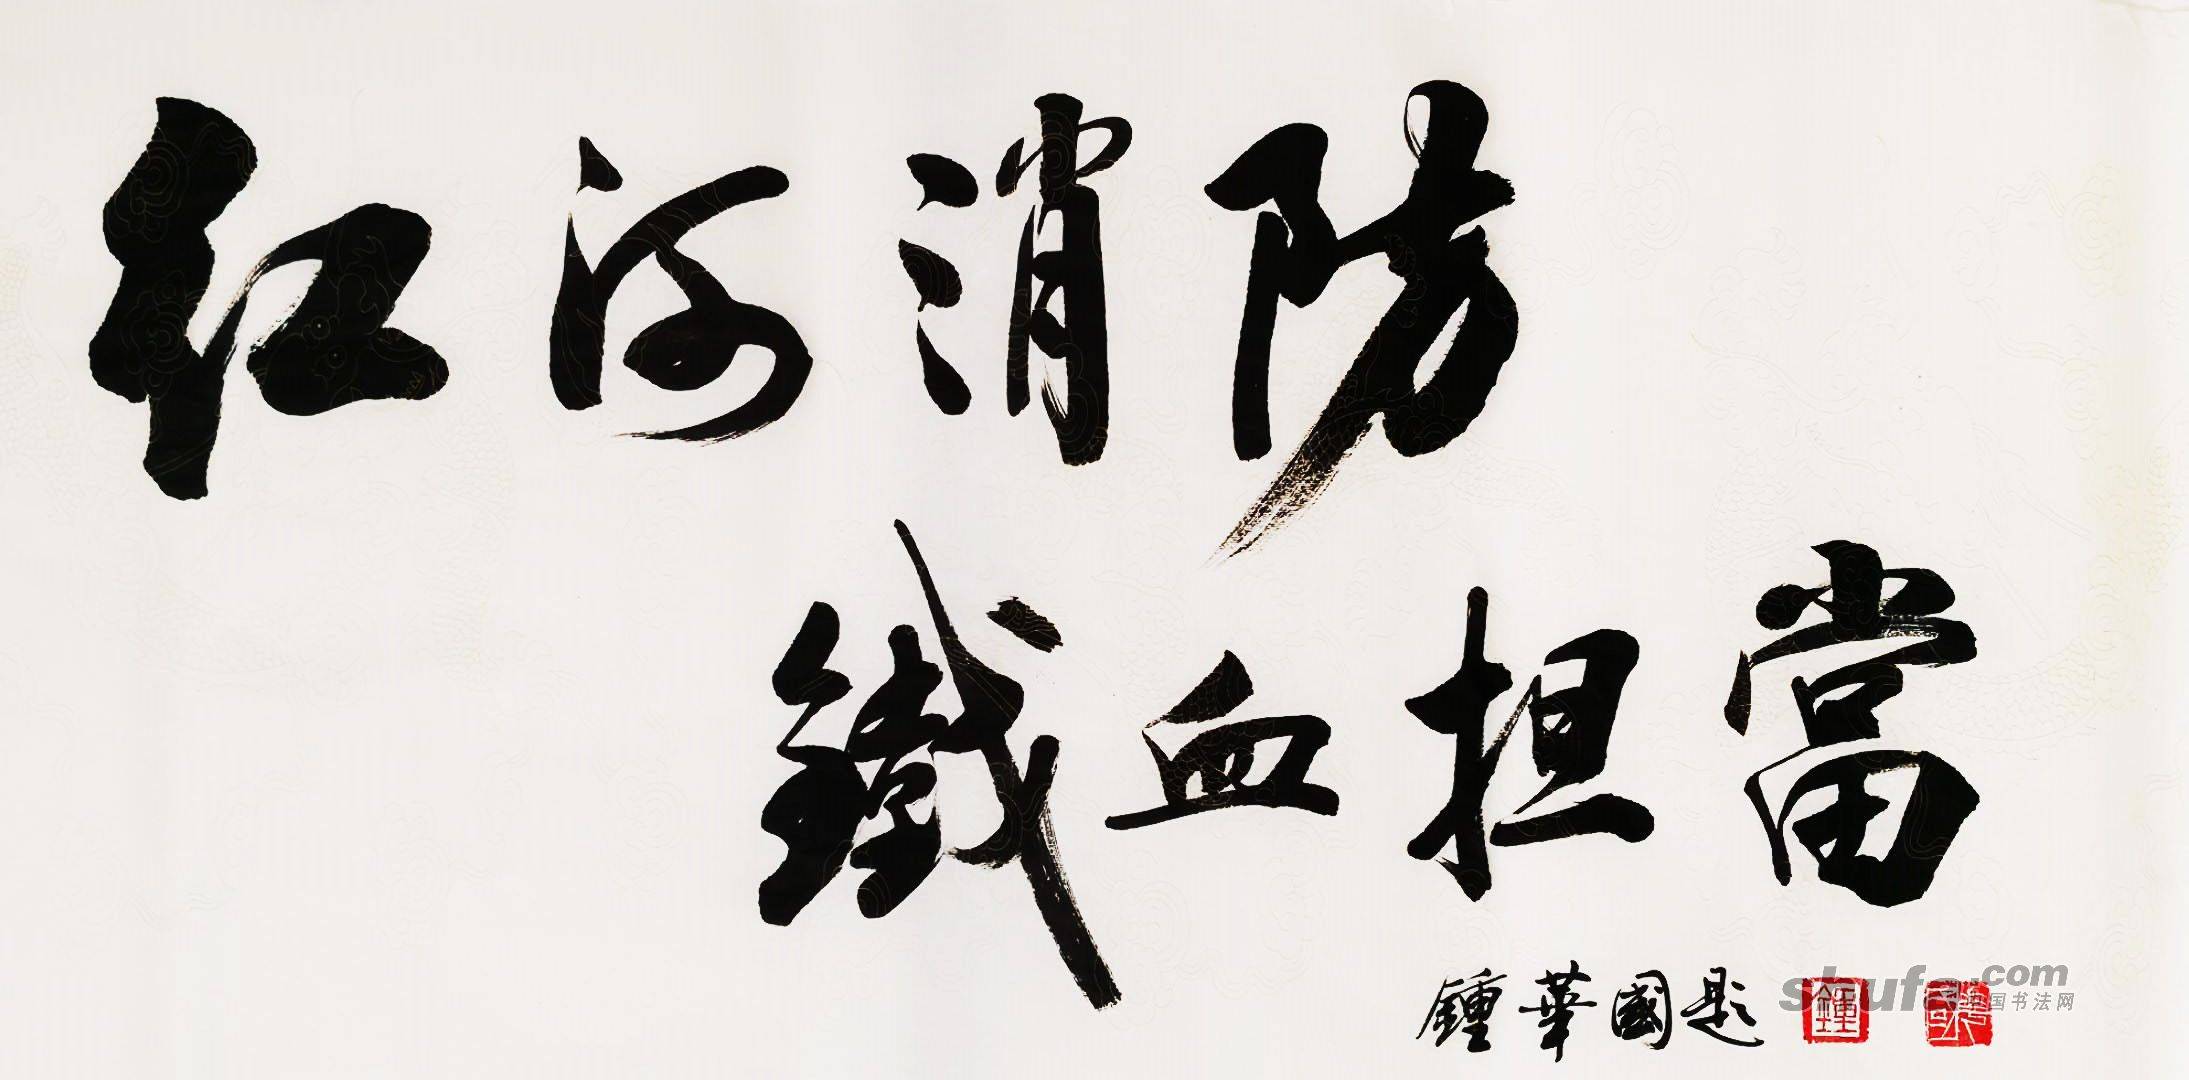 红河消防
鐵血担當
鍾華國题
shufa.com
中国书法网
鍾